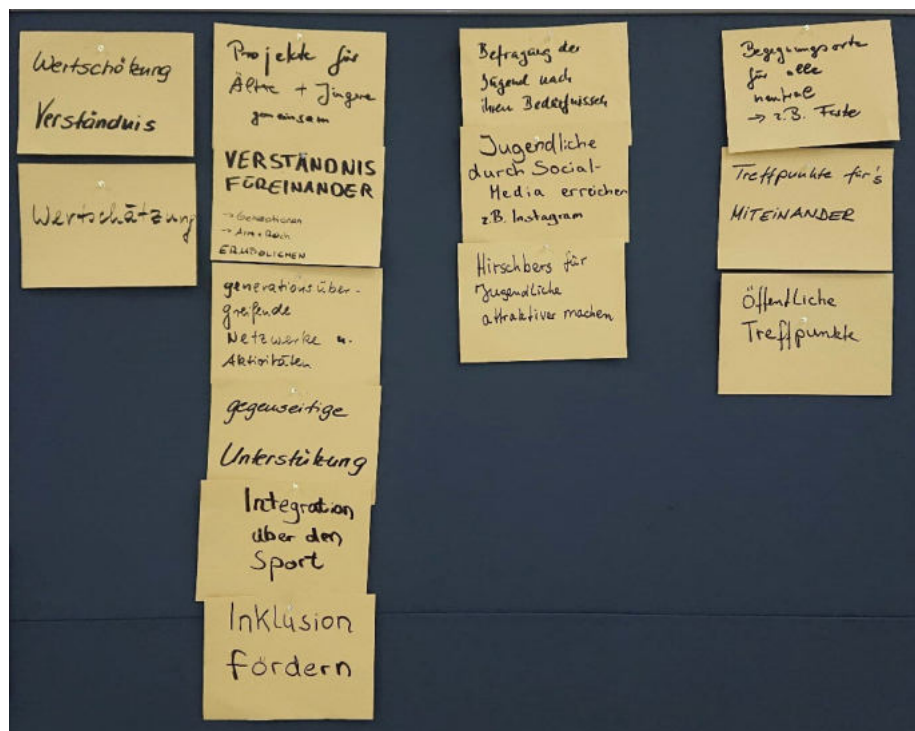 Wertschätzung
Verständnis
Wertschätzung
Projekte für
Ältere + Jüngere
gemeinsam
VERSTÄNDNIS
FÜREINANDER
→ Generationen
→ Arm + Reich
ERMÖGLICHEN
generationsüber-
greifende
Netzwerke u.
Aktivitäten
gegenseitige
Unterstützung
Integration
über den
Sport
Inklusion
fördern
Befragung der
Jugend nach
ihren Bedürfnissen
Jugendliche
durch Social-
Media erreichen
z.B. Instagram
Hirschberg für
Jugendliche
attraktiver machen
Begegnungsorte
für alle
neutral
→ z.B. Feste
Treffpunkte für's
MITEINANDER
Öffentliche
Treffpunkte